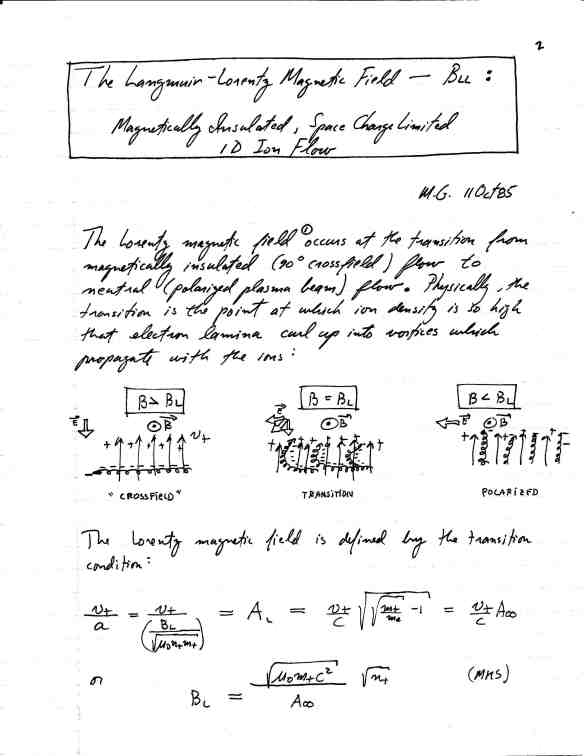 2
The Langmuir-Lorentz Magnetic Field — BLL :
Magnetically Insulated, Space Charge Limited
1D Ion Flow
M.G. 11 Oct 85
The Lorentz magnetic field① occurs at the transition from
magnetically insulated (90° crossfield) flow to
neutral (polarized plasma beam) flow. Physically, the
transition is the point at which ion density is so high
that electron lamina curl up into vortices which
propagate with the ions :
B > B_L B = B_L B < B_L
E⃗ ⊙B⃗ E⃗ ⊙B⃗ E⃗ ⊙B⃗
+ + + + + v+ + + + + + + + + + −
"CROSSFIELD" TRANSITION POLARIZED
The Lorentz magnetic field is defined by the transition
condition :
v+/a = v+/(B_L/√(μ0 n+ m+)) = A_L = v+/c √(√(m+/me) − 1) = v+/c A∞
or B_L = √(μ0 m+ c²)/A∞ √n+ (MKS)